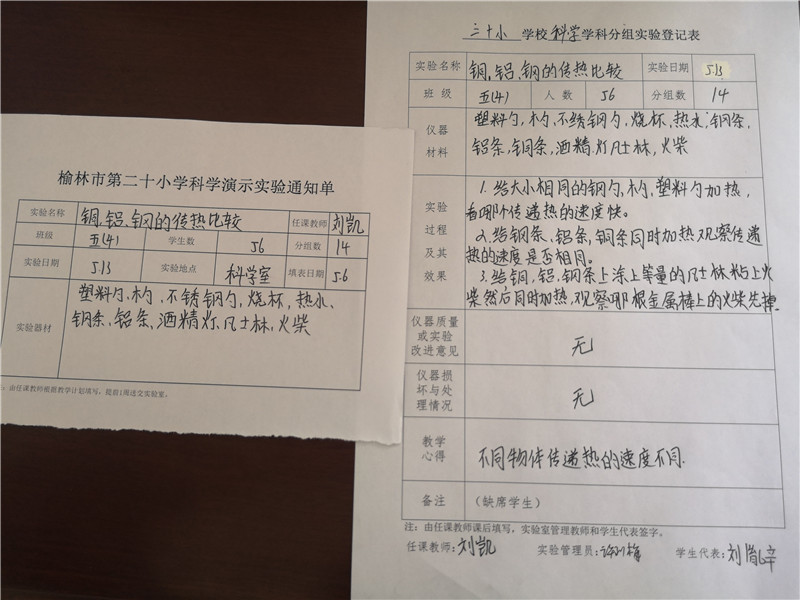 榆林市第二十小学科学演示实验通知单
实验名称 铜、铝、钢的传热比较 任课教师 刘凯
班级 五(4) 学生数 56 分组数 14
实验日期 5.13 实验地点 科学室 填表日期 5.6
实验器材 塑料勺,木勺,不锈钢勺,烧杯,热水,
钢条,铝条,酒精灯,凡士林,火柴
由任课教师根据教学计划填写,提前1周送交实验室。
三十小 学校 科学 学科分组实验登记表
实验名称 铜,铝,钢的传热比较 实验日期 5.13
班 级 五(4) 人 数 56 分组数 14
仪器材料 塑料勺,木勺,不锈钢勺,烧杯,热水,钢条,
铝条,铜条,酒精灯,凡士林,火柴
实验过程及其效果 1.给大小相同的钢勺,木勺,塑料勺加热,
看哪个传递热的速度快。
2.给钢条、铝条,铜条同时加热,观察传递
热的速度是否相同。
3.给铜,铝,钢条上涂上等量的凡士林,粘上火
柴,然后同时加热,观察哪根金属棒上的火柴先掉
仪器质量或实验改进意见 无
仪器损坏与处理情况 无
教学心得 不同物体传递热的速度不同.
备注 (缺席学生)
注:由任课教师课后填写,实验室管理教师和学生代表签字。
任课教师:刘凯 实验管理员: 学生代表:刘